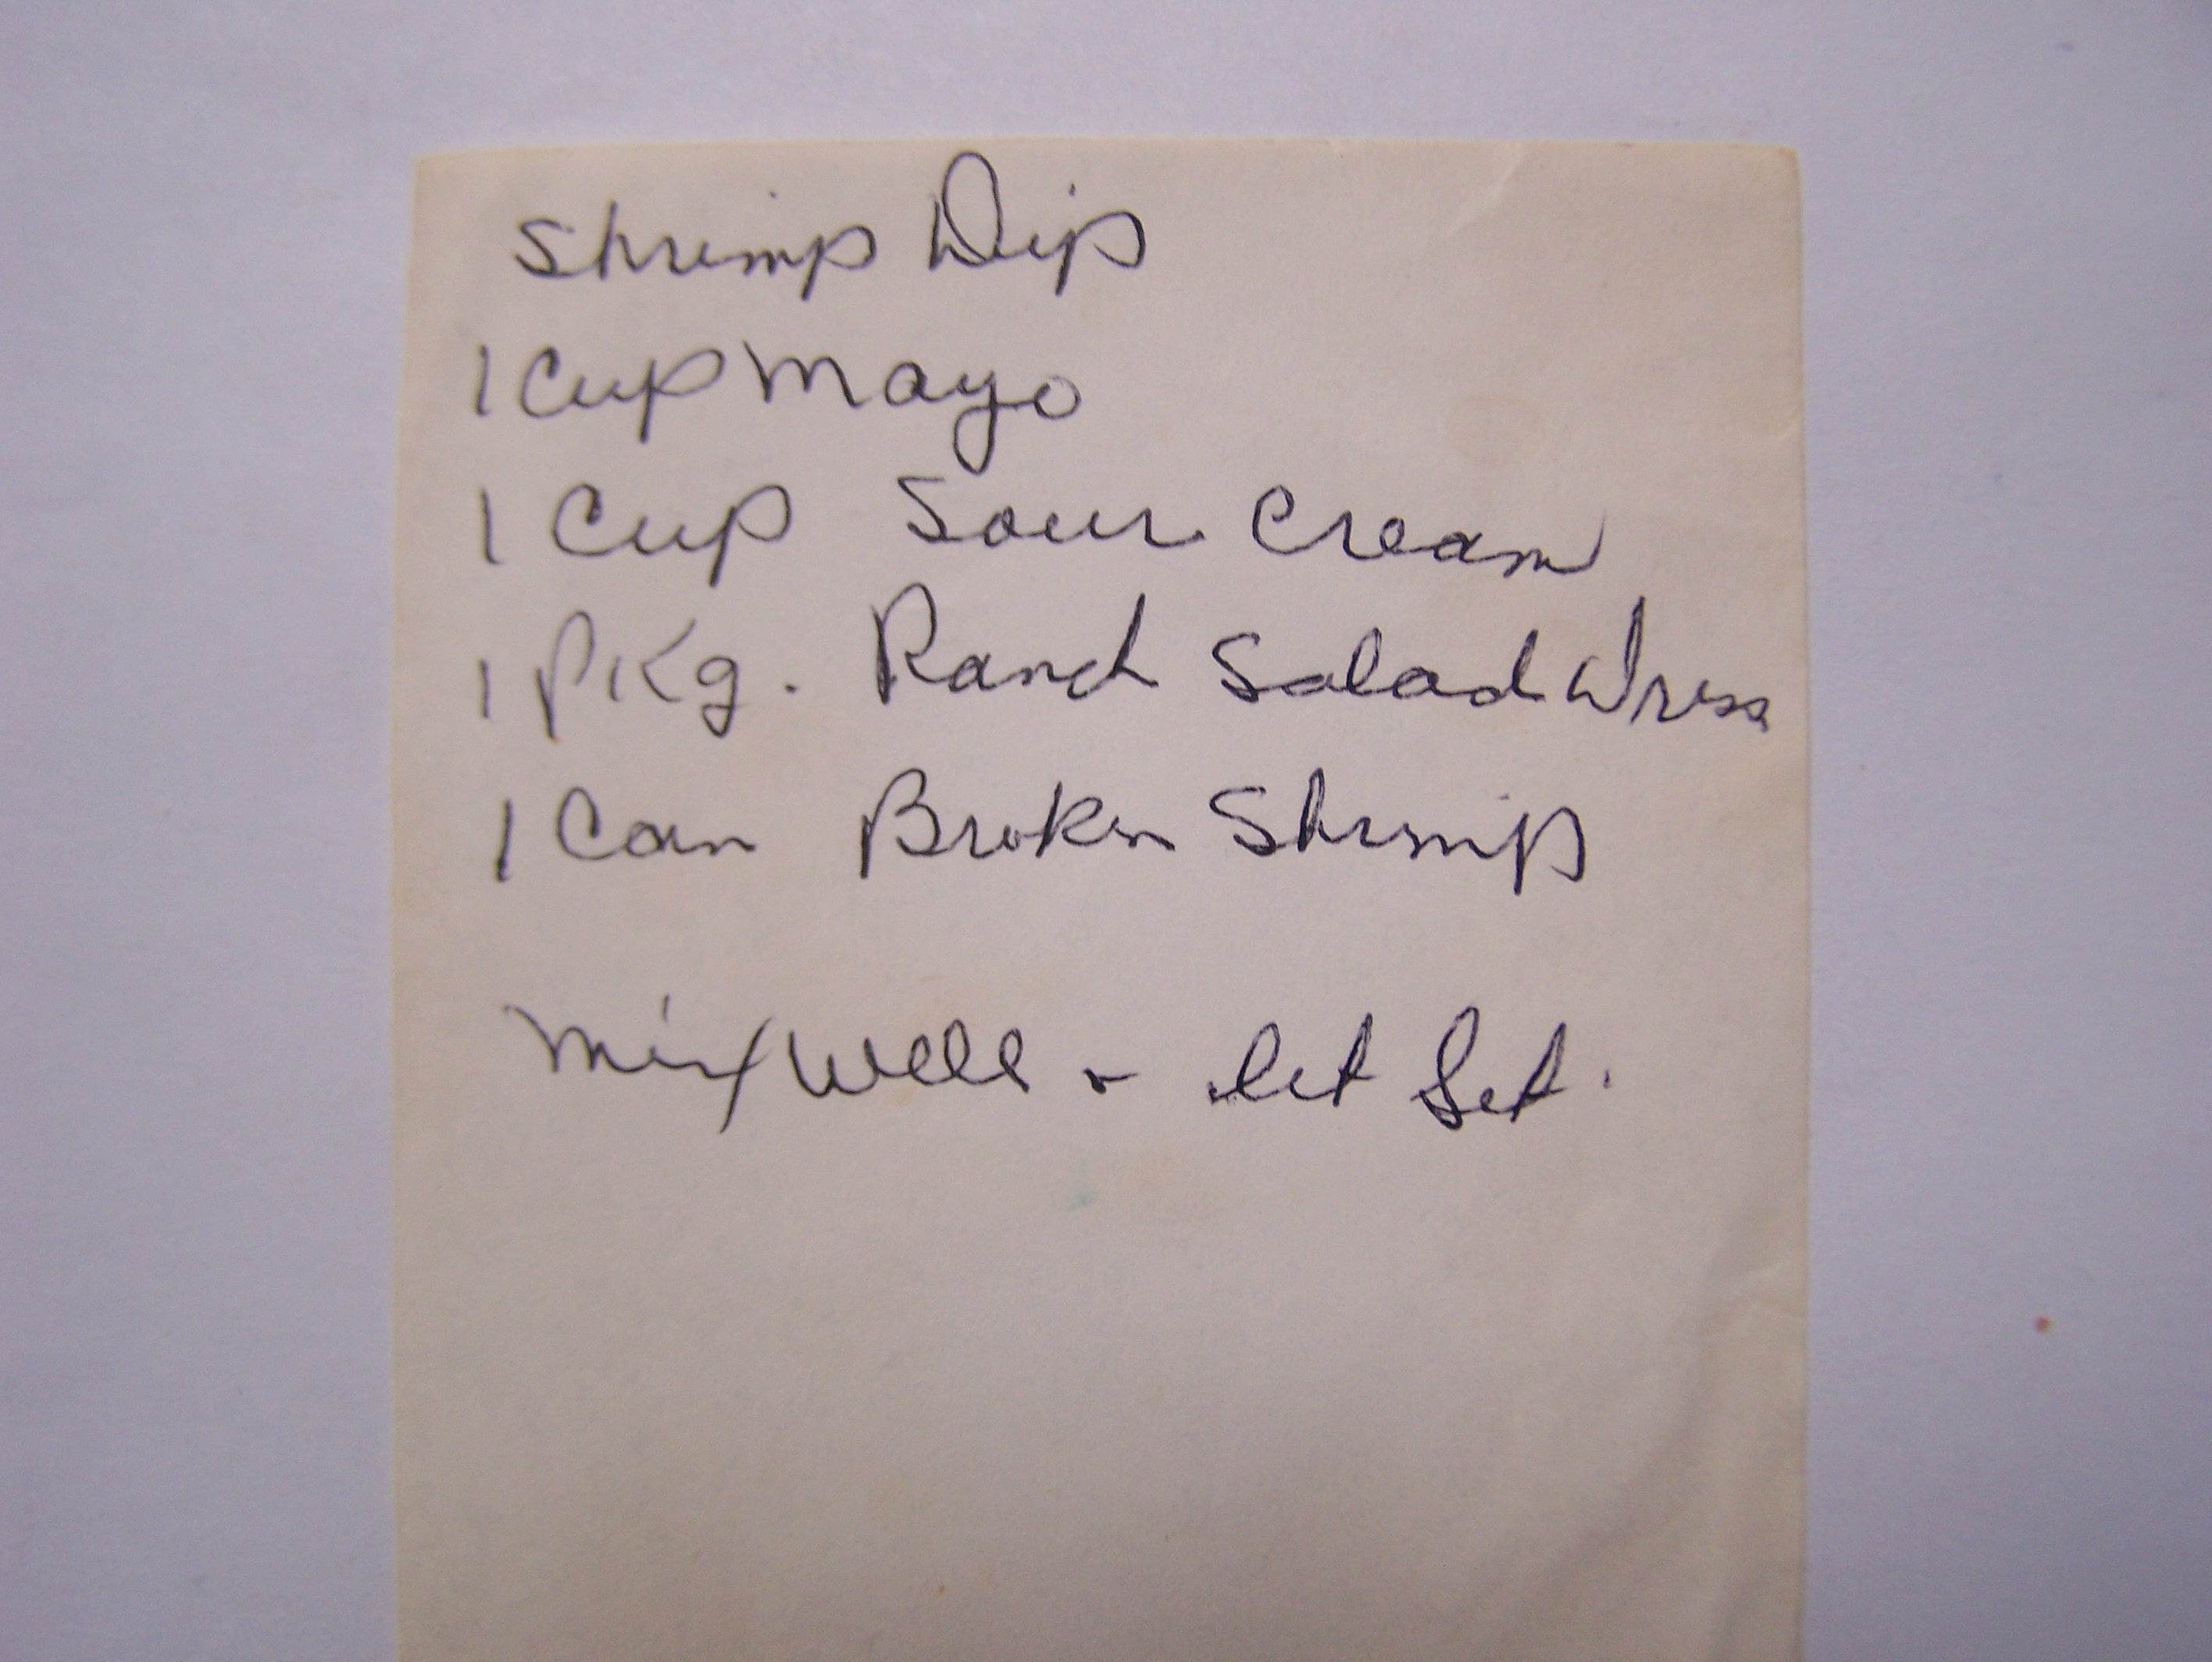 Shrimp Dip
1 Cup Mayo
1 Cup Sour Cream
1 PKg. Ranch Salad Dress
1 Can Broken Shrimp
Mix Well & let Set.